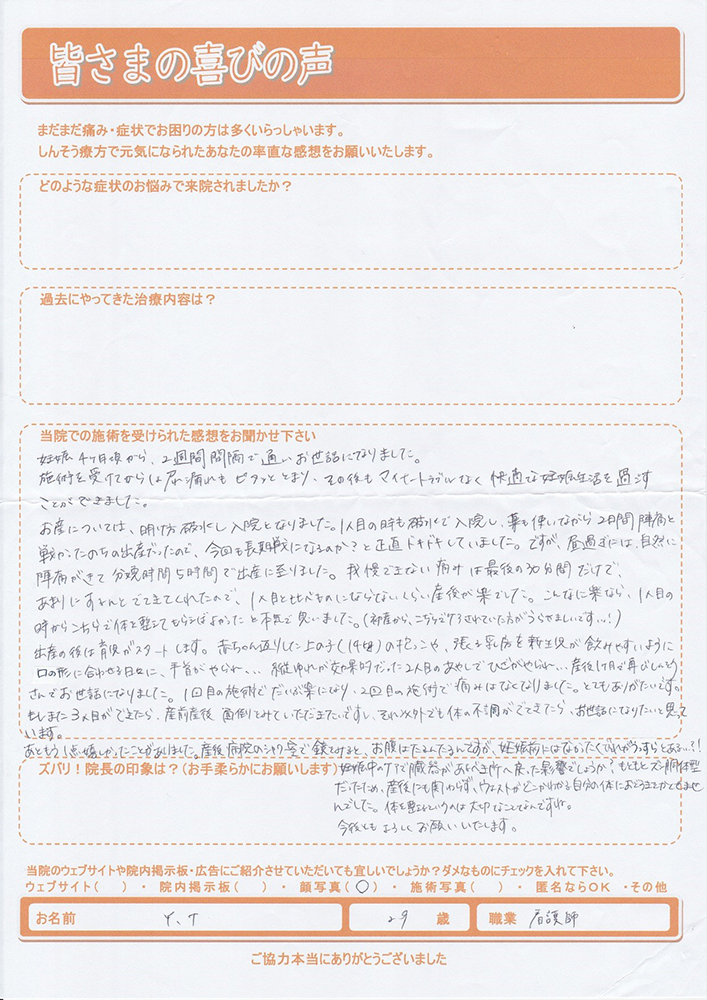 皆さまの喜びの声
まだまだ痛み・症状でお困りの方は多くいらっしゃいます。
しんそう療方で元気になられたあなたの率直な感想をお願いいたします。
どのような症状のお悩みで来院されましたか？
過去にやってきた治療内容は？
当院での施術を受けられた感想をお聞かせ下さい
妊娠4ヶ月頃から、2週間間隔で通いお世話になりました。
施術を受けてからは尿漏れもピタッととまり、その後もマイナートラブルなく快適な妊娠生活を過ごす
ことができました。
お産については、明け方破水し入院となりました。1人目の時も破水で入院し、薬も使いながら2日間陣痛と
戦かったのちの出産だったので、今回も長期戦になるのか？と正直ドキドキしていました。ですが、昼過ぎには自然に
陣痛がきて分娩時間5時間で出産に至りました。我慢できない痛みは最後の30分間だけで、
あまりにすとんとでてきてくれたので、1人目と比べものにならないくらい産後が楽でした。こんなに楽なら、1人目の
時からこちらで体を整えてもらえばよかったと本気で思いました。(初産から、こちらでケアされていた方がうらやましいです…!)
出産の後は育児がスタートします。赤ちゃん返りした上の子(14kg)の抱っこや、張る乳房を新生児が飲みやすいように
口の形に合わせる日々に、手首がやられ、、、縦ゆれが効果的だった2人目のあやしでひざがやられ…産後1ヶ月で再びしんそう
さんでお世話になりました。1回目の施術でだいぶ楽になり、2回目の施術で痛みはなくなりました。とてもありがたいです。
もしまた3人目ができたら、産前産後面倒をみていただきたいですし、それ以外でも体の不調がでてきたら、お世話になりたいと思って
います。
あともう1点嬉しかったことがありました。産後病院のシャワー室で鏡をみると、お腹はたるんたるんですが、妊娠前にはなかったくびれがうっすらとある…?!
ズバリ！院長の印象は？(お手柔らかにお願いします)
妊娠中のケアで臓器があるべき所へ戻った影響でしょうか？もともとズン胴体型
だったため、産後にも関わらず、ウエストがどこかわかる自分の体におどろきでかくせませ
んでした。体を整えるというのは大切なことなんですね。
今後ともよろしくお願いいたします。
当院のウェブサイトや院内掲示板・広告にご紹介させていただいても宜しいでしょうか？ダメなものにチェックを入れて下さい。
ウェブサイト( )・院内掲示板( )・顔写真(○)・施術写真( )・匿名ならOK・その他
お名前 Y、T 29 歳 職業 看護師
ご協力本当にありがとうございました